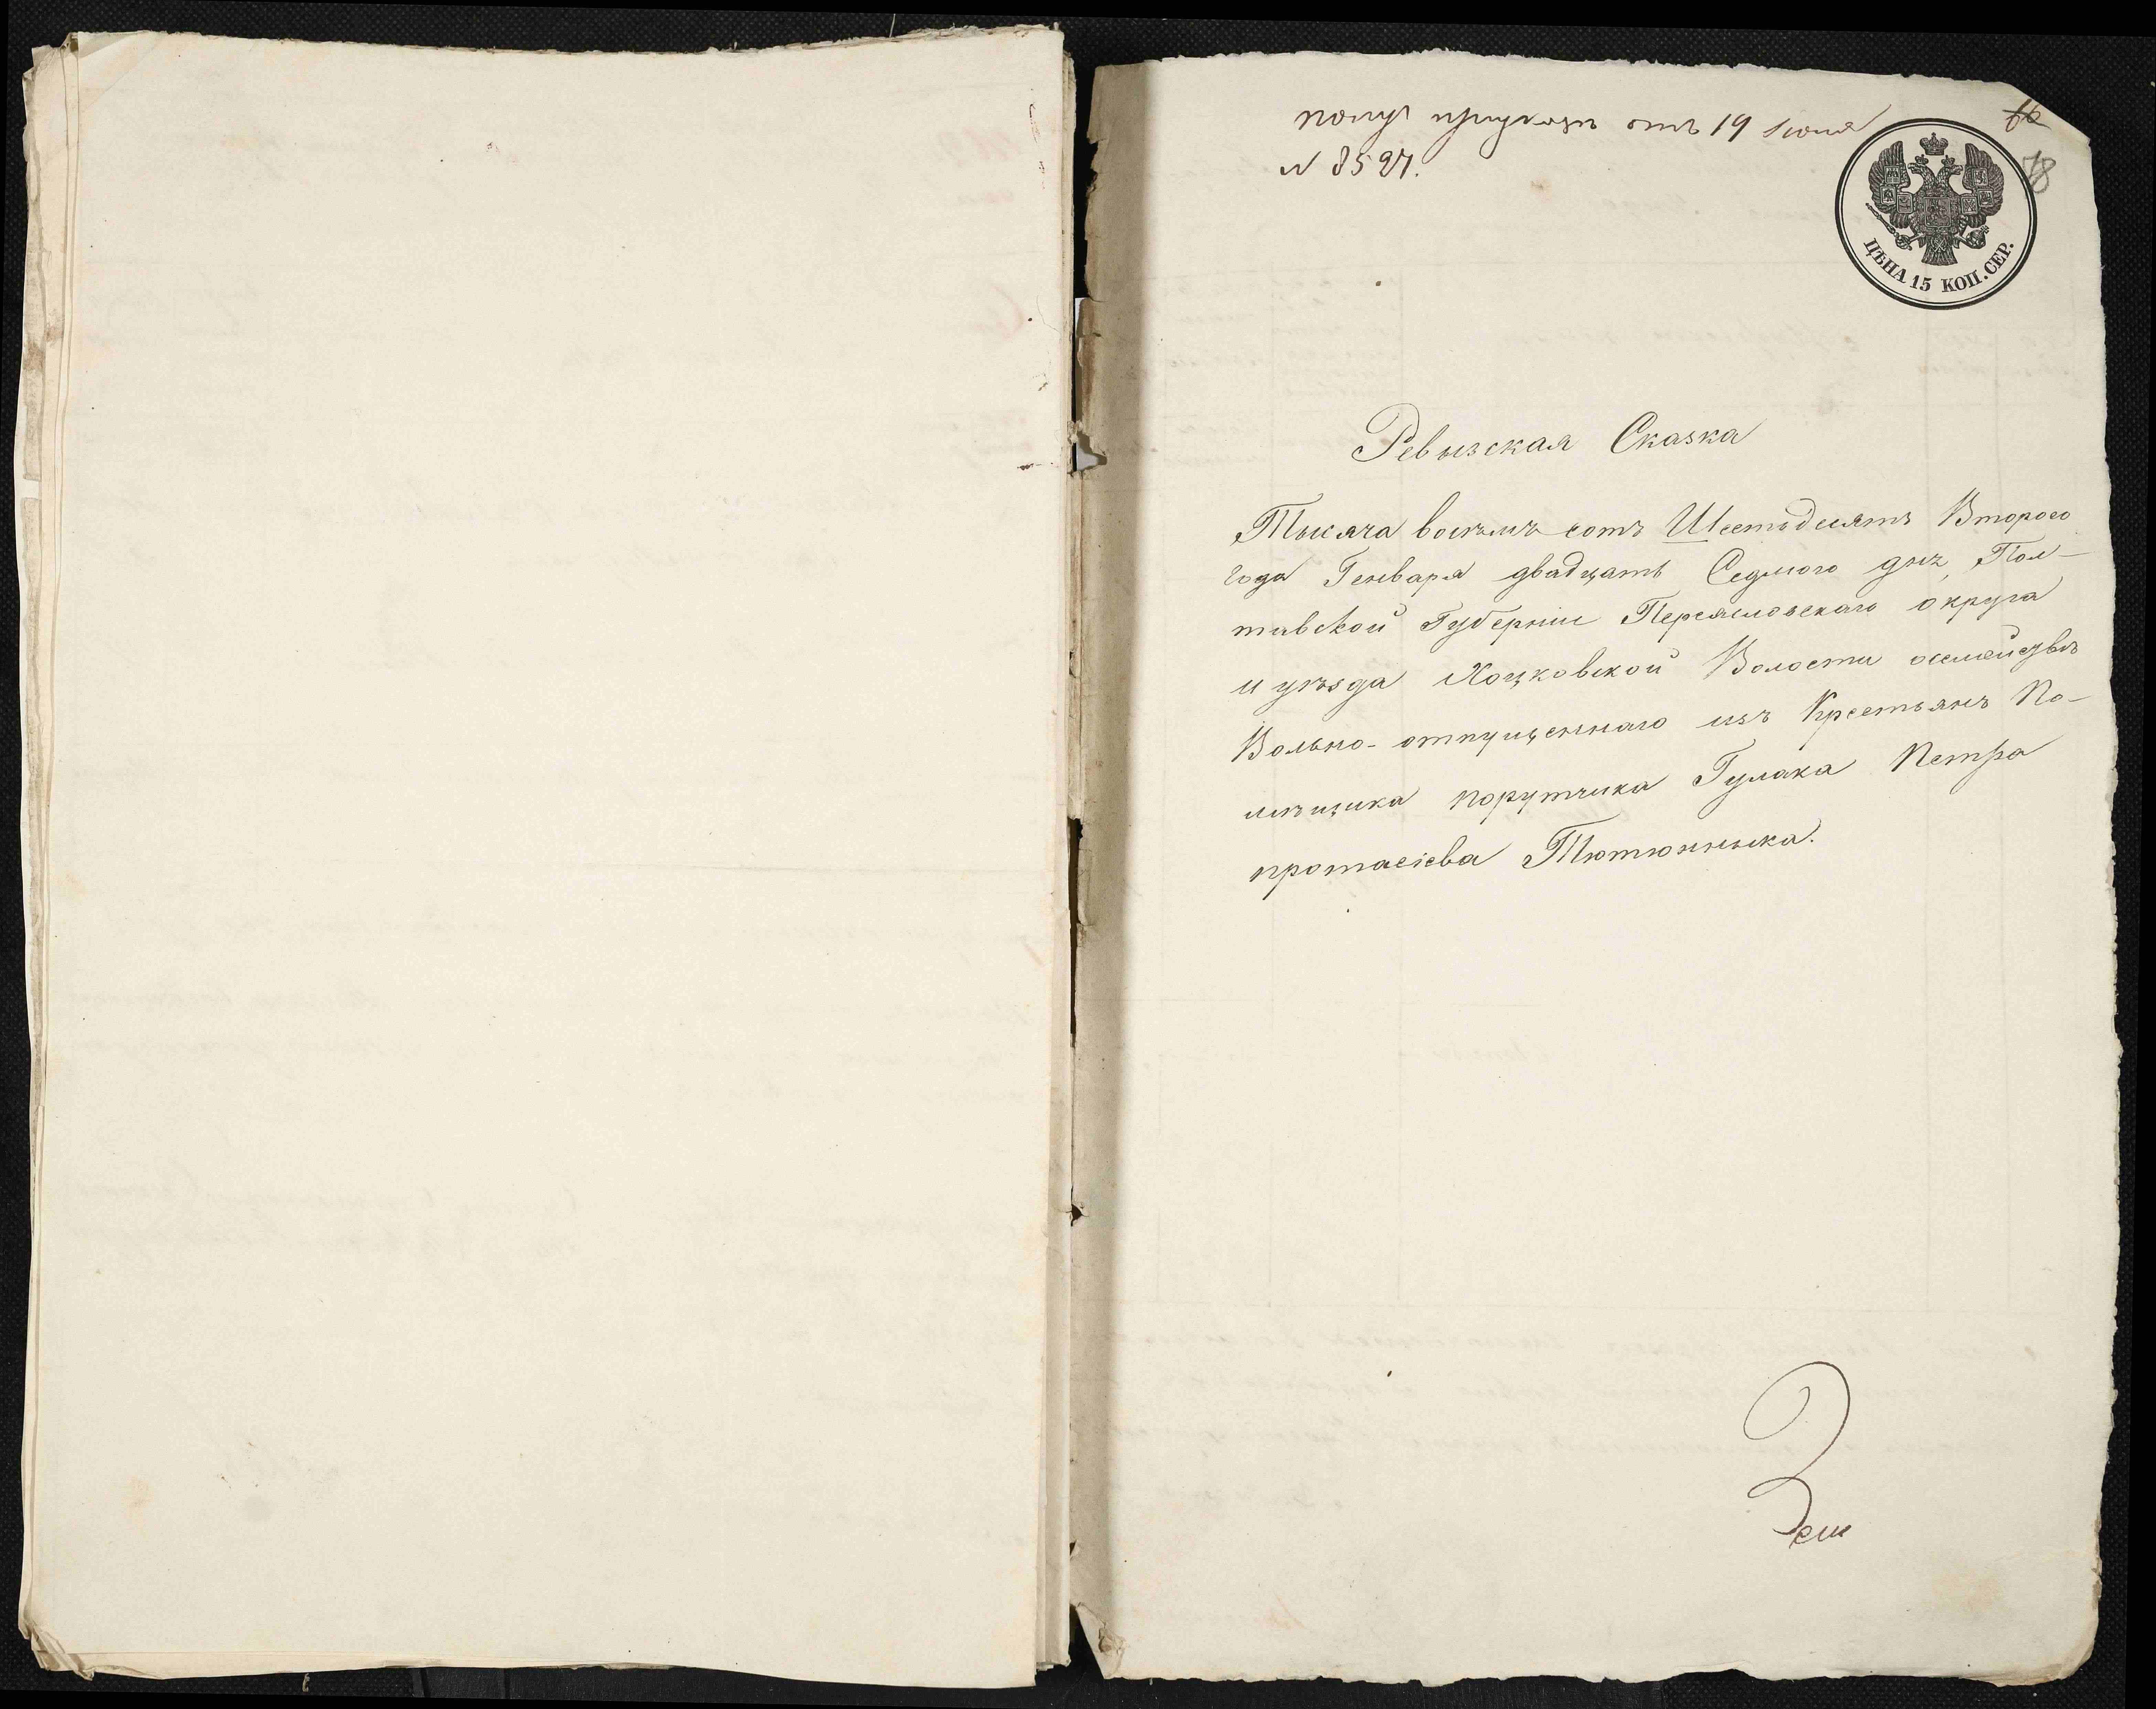 отъ 19 Июня
66
N 8527.
78
ЦѢНА 15 КОП. СЕР.
Ревызская Сказка
Тысяча восѣмъ сотъ Шестъдесятъ Второго
года Генваря двадцать Седмого дня, Пол-
тавской Губерніи Переясловскаго округа
и уѣзда Хоцковской Волости о семействѣ
Вольно-отпущеннаго изъ Крестьянъ По-
мѣщика порутчика Гулака Петра
протасіева Тютюнныка.